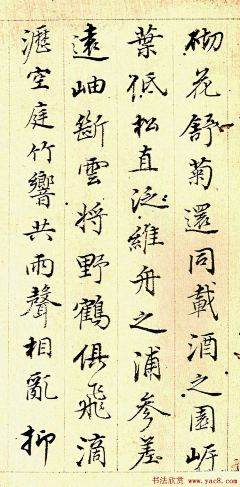 砌花舒菊還同載酒之園岸
葉低松直泛維舟之浦參差
遠岫斷雲將野鶴俱飛滴
瀝空庭竹響共雨聲相亂抑
书法欣赏
www.yac8.com